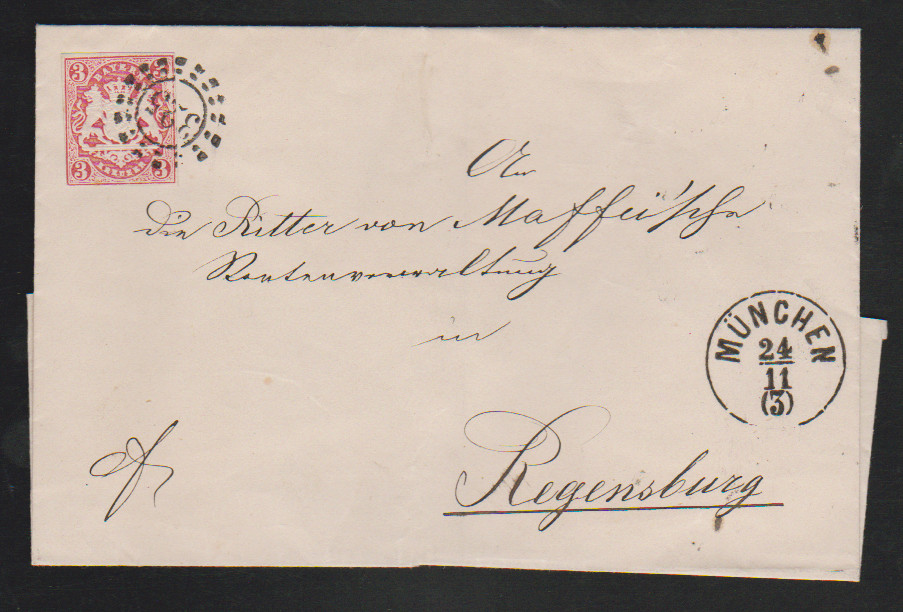 3 BAYERN 3
3 KREUZER 3
An
die Ritter von Maffei'sche
Rentenverwaltung
in
MÜNCHEN
24
11
(3)
Regensburg